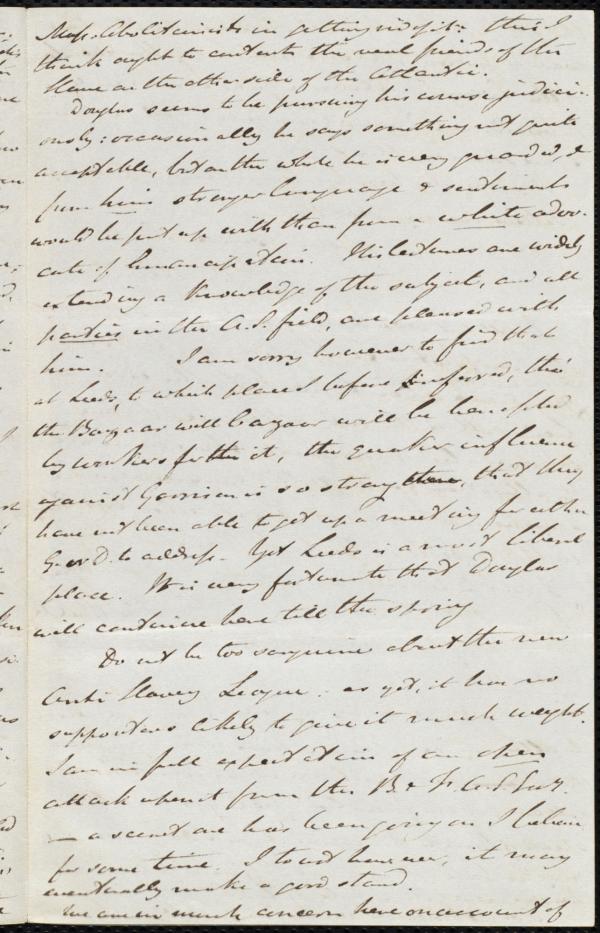 Mass. Abolitionists in getting rid of it: this I
think ought to content the real friends of the
slave on the other side of the Atlantic.
Douglas seems to be pursuing his course judici-
ously: occasionally he says something not quite
acceptable, but on the whole he is very guarded, &
from him stronger language & sentiments
would be put up with than from a white advo-
cate of Emancipation. His lectures are widely
extending a knowledge of the subject, and all
parties in the A. S. field, are pleased with
him. I am sorry however to find that
at Leeds, to which place I before referred, tho'
the Bazaar will be
by workers for it, the quaker influence
against Garrison is so strong there, that they
have not been able to get up a meeting for either
G. or D. to address. Yet Leeds is a most liberal
place. It is very fortunate that Douglas
will continue here till the spring
Do not be too sanguine about the new
Anti Slavery League: as yet, it has no
supporters likely to give it much weight.
I am in full expectation of an open
attack upon it from the B. & F. A. S. Socy.
— a secret one has been going on I believe
for some time. I trust however, it may
eventually make a good stand.
We are in much concern here on account of